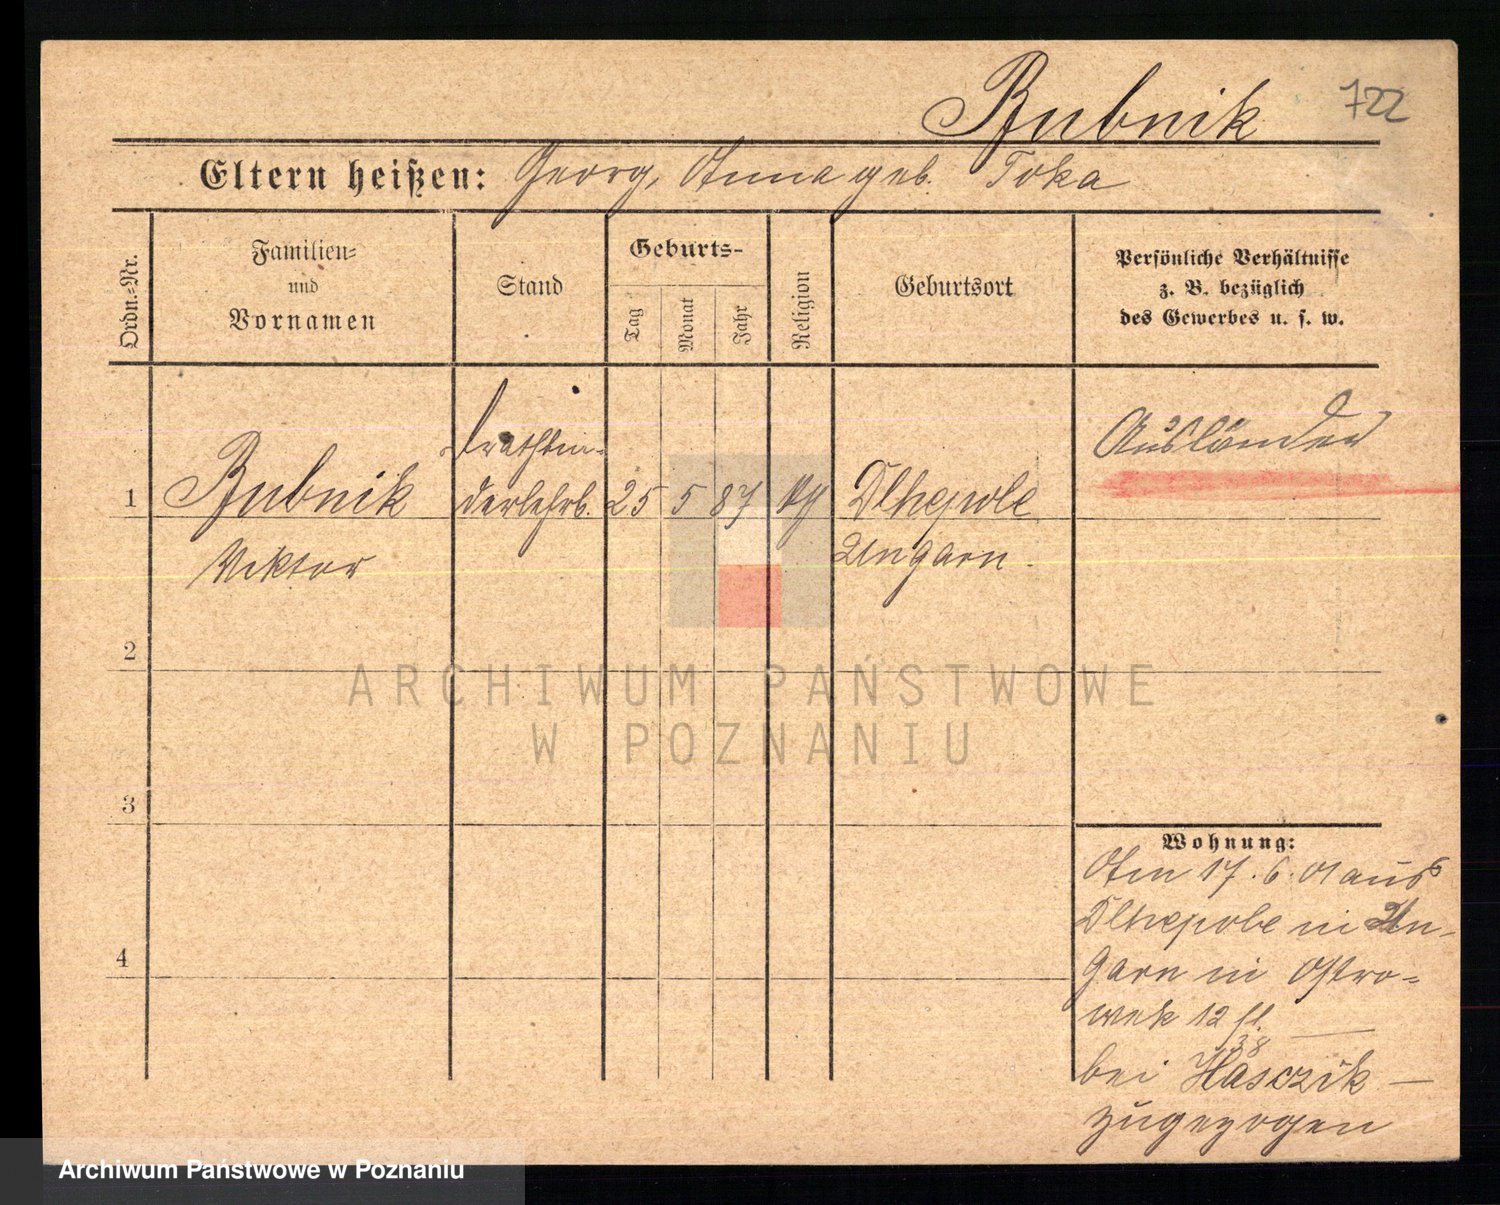 Bubnik 722
Eltern heißen: Georg, Anna geb. Toka
Ordn.-Nr.
Familien-
und
Vornamen
Stand
Geburts-
Tag
Monat
Jahr
Religion
Geburtsort
Persönliche Verhältnisse
z. B. bezüglich
des Gewerbes u. s. w.
1
Bubnik
Viktor
Drathbin-
derlehrb.
25 5 87
Dlhepole
Ungarn
Ausländer
2
3
4
Wohnung:
Am 17. 6. 01 aus
Dlhepole in Un-
garn in Ostro-
wek 12
38
bei Hasczik
zugezogen
ARCHIWUM PAŃSTWOWE
W POZNANIU
Archiwum Państwowe w Poznaniu